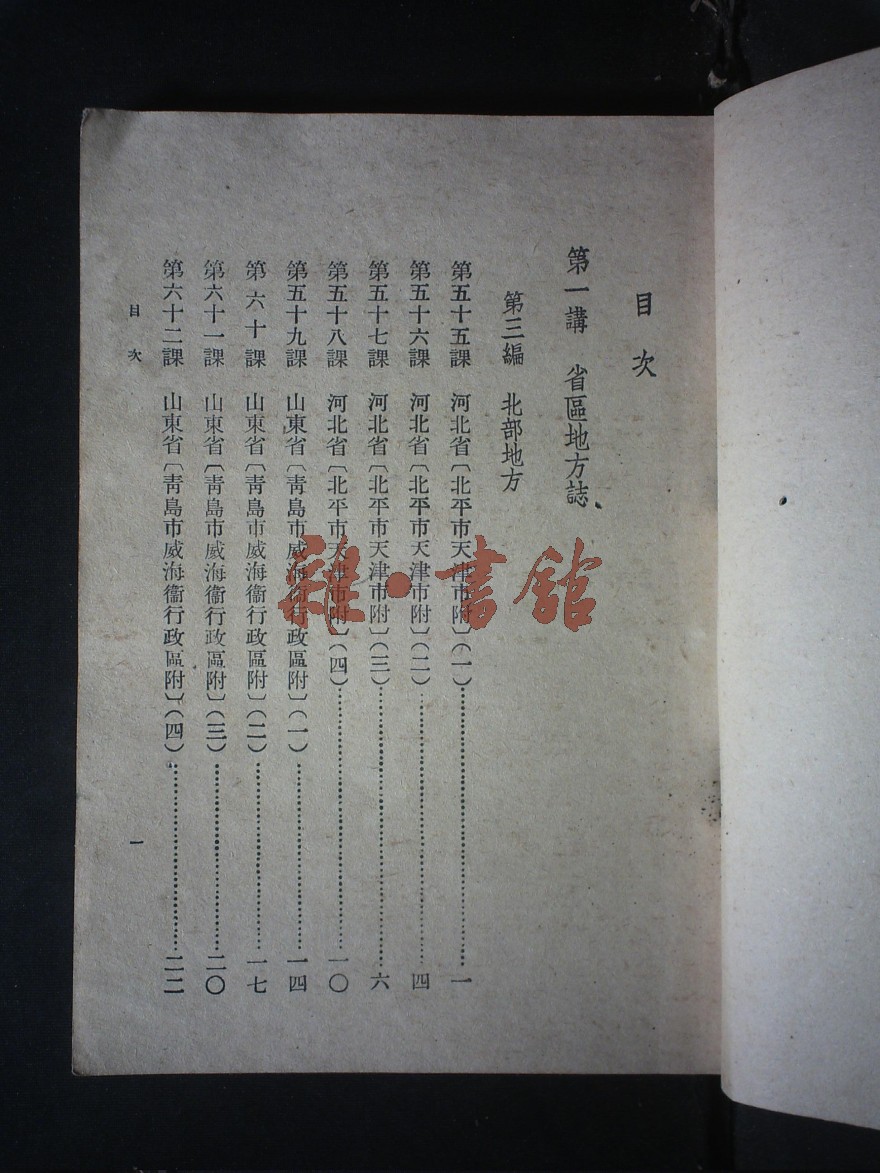 目次
第一講 省區地方誌
第三編 北部地方
第五十五課 河北省〔北平市天津市附〕(一)……一
第五十六課 河北省〔北平市天津市附〕(二)……四
第五十七課 河北省〔北平市天津市附〕(三)……六
第五十八課 河北省〔北平市天津市附〕(四)……一〇
第五十九課 山東省〔靑島市威海衞行政區附〕(一)……一四
第六十課 山東省〔靑島市威海衞行政區附〕(二)……一七
第六十一課 山東省〔靑島市威海衞行政區附〕(三)……二〇
第六十二課 山東省〔靑島市威海衞行政區附〕(四)……二二
目次 一
雜·書館